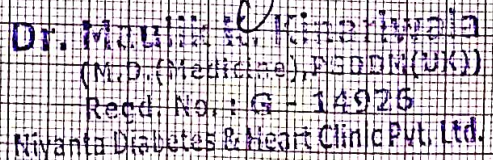 Dr. Maulik R. Kinariwala
(M.D.(Medicine),PGDDM(UK))
Regd. No. : G - 14926
Niyanta Diabetes & Heart Clinic Pvt. Ltd.